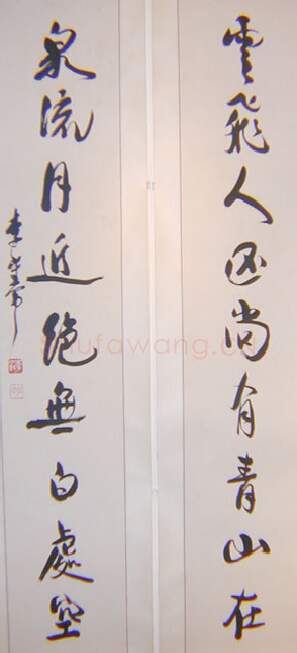 雲飛人尚有青山在
泉流月近絶無白處
shufawang.cn